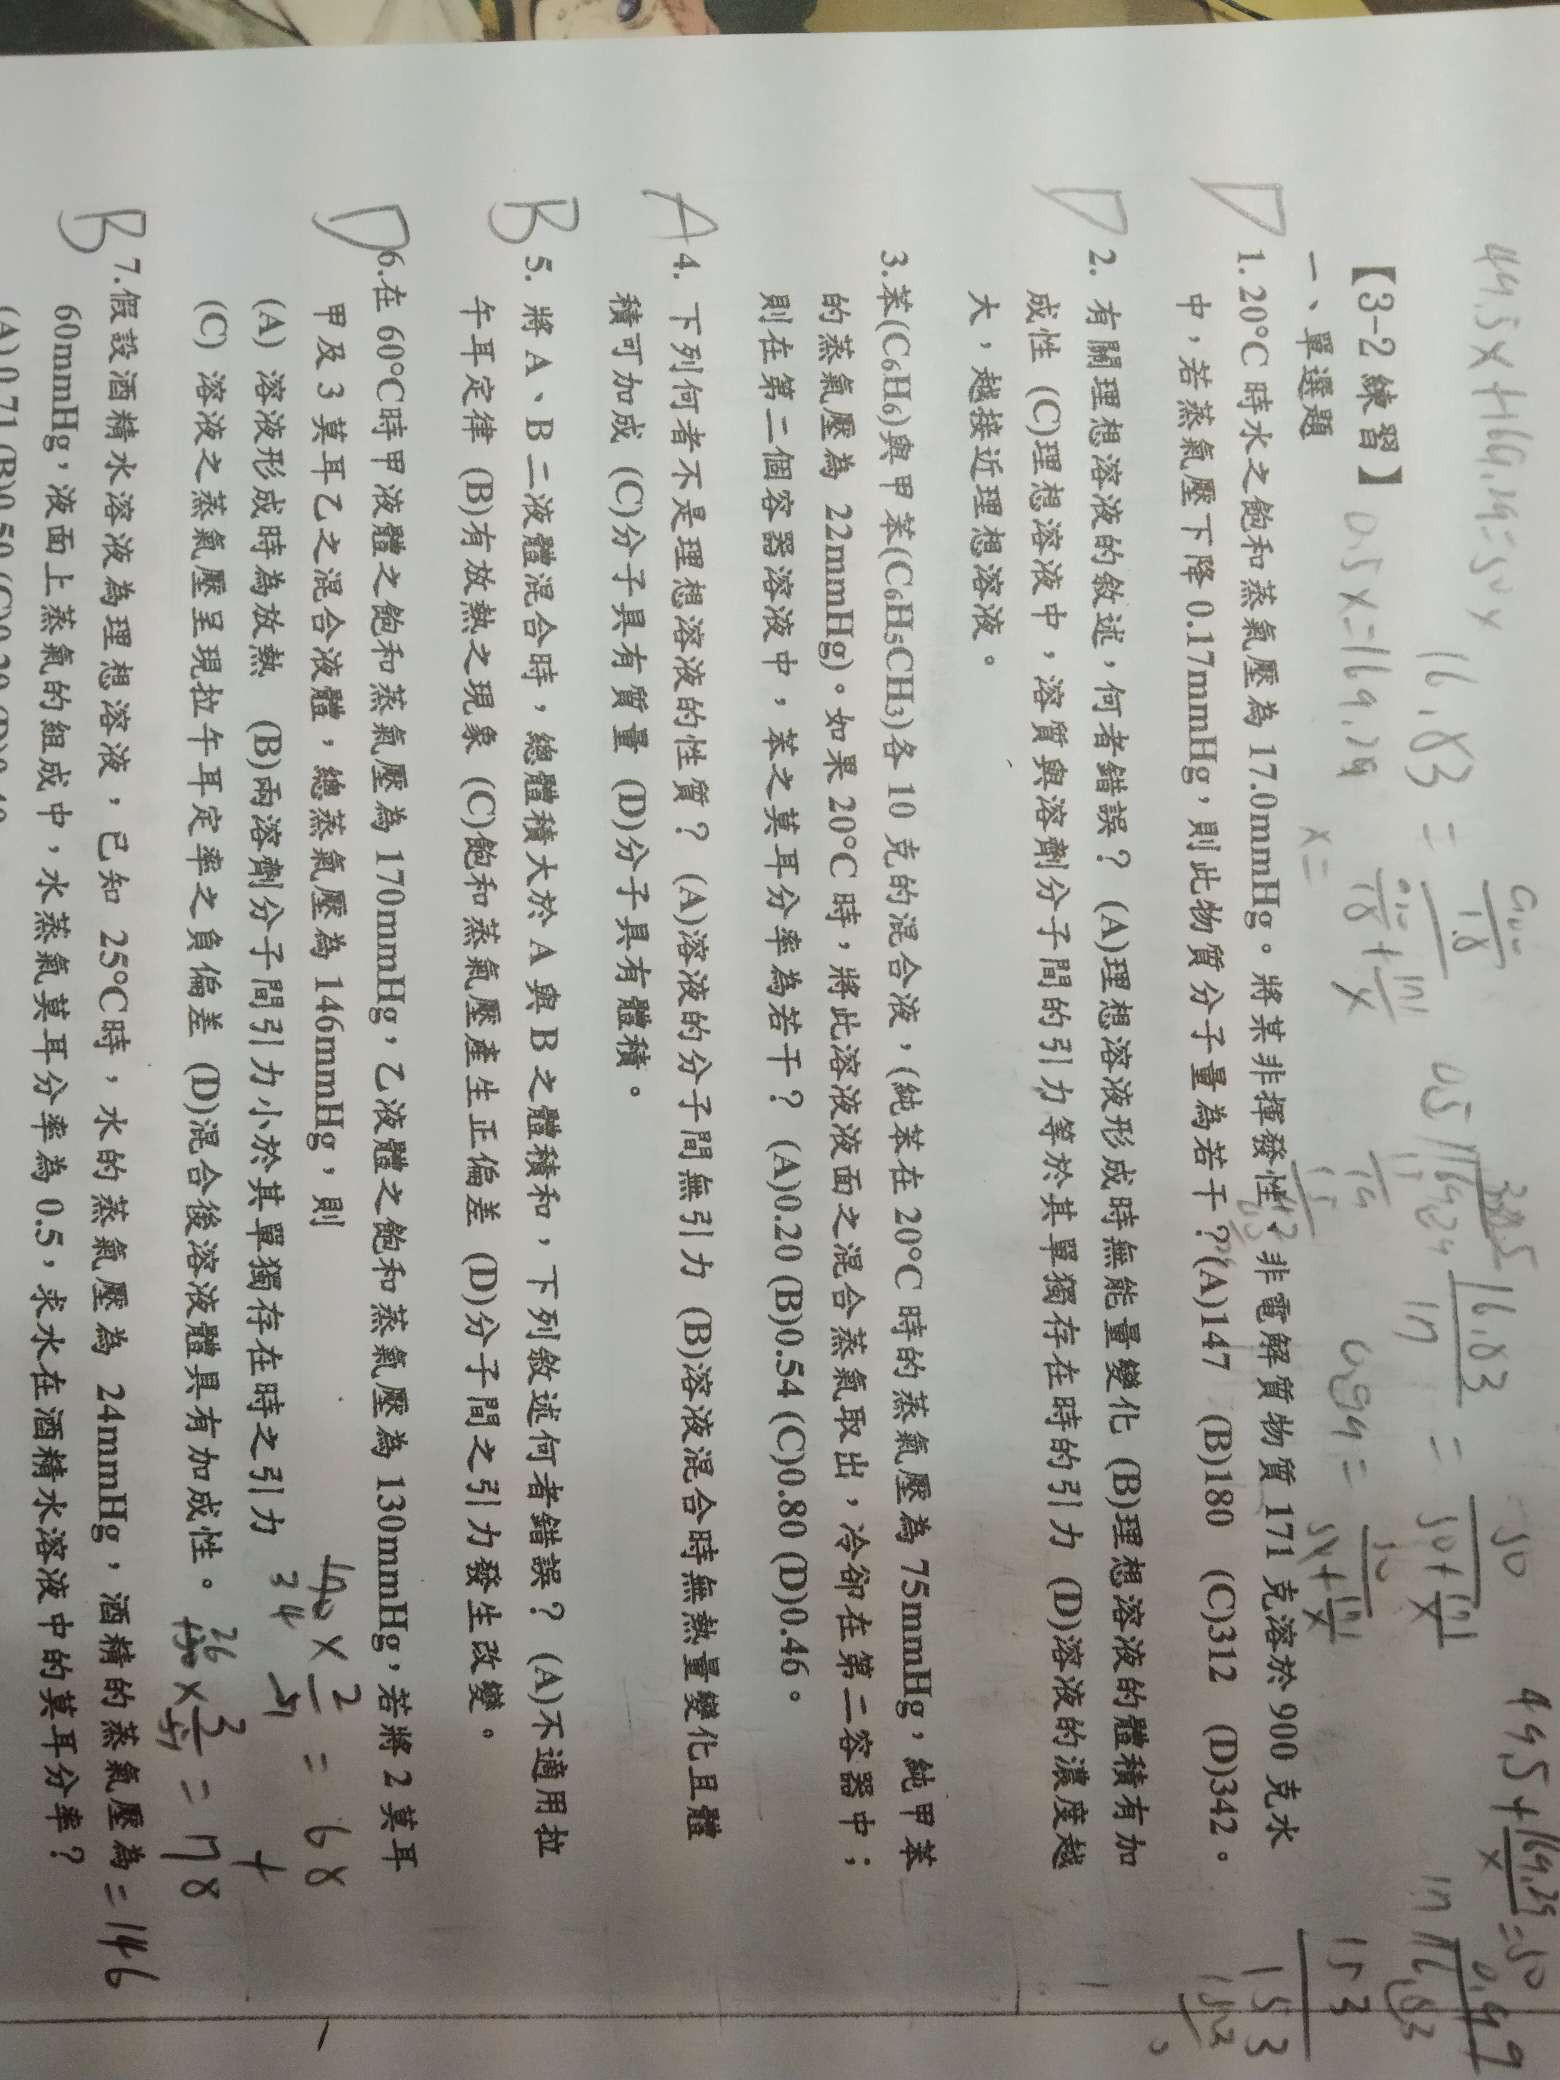 49.5x+169.29=50x
【3-2 練習】
0.5x=169.29
16.83
一、單選題
D 1. 20°C 時水之飽和蒸氣壓為 17.0mmHg。將某非揮發性、非電解質物質 171 克溶於 900 克水
中，若蒸氣壓下降 0.17mmHg，則此物質分子量為若干？(A)147 (B)180 (C)312 (D)342。
D 2. 有關理想溶液的敘述，何者錯誤？ (A)理想溶液形成時無能量變化 (B)理想溶液的體積有加
成性 (C)理想溶液中，溶質與溶劑分子間的引力等於其單獨存在時的引力 (D)溶液的濃度越
大，越接近理想溶液。
3.苯(C6H6)與甲苯(C6H5CH3)各 10 克的混合液，(純苯在 20°C 時的蒸氣壓為 75mmHg，純甲苯
的蒸氣壓為 22mmHg)。如果 20°C 時，將此溶液液面之混合蒸氣取出，冷卻在第二容器中；
則在第二個容器溶液中，苯之莫耳分率為若干？ (A)0.20 (B)0.54 (C)0.80 (D)0.46。
A 4. 下列何者不是理想溶液的性質？ (A)溶液的分子間無引力 (B)溶液混合時無熱量變化且體
積可加成 (C)分子具有質量 (D)分子具有體積。
B 5. 將 A、B 二液體混合時，總體積大於 A 與 B 之體積和，下列敘述何者錯誤？ (A)不適用拉
午耳定律 (B)有放熱之現象 (C)飽和蒸氣壓產生正偏差 (D)分子間之引力發生改變。
D 6.在 60°C時甲液體之飽和蒸氣壓為 170mmHg，乙液體之飽和蒸氣壓為 130mmHg，若將 2 莫耳
甲及 3 莫耳乙之混合液體，總蒸氣壓為 146mmHg，則
(A) 溶液形成時為放熱 (B)兩溶劑分子間引力小於其單獨存在時之引力
(C) 溶液之蒸氣壓呈現拉午耳定率之負偏差 (D)混合後溶液體具有加成性。
B 7.假設酒精水溶液為理想溶液，已知 25°C時，水的蒸氣壓為 24mmHg，酒精的蒸氣壓為 =146
60mmHg，液面上蒸氣的組成中，水蒸氣莫耳分率為 0.5，求水在酒精水溶液中的莫耳分率？
(A)0.71 (B)0.50